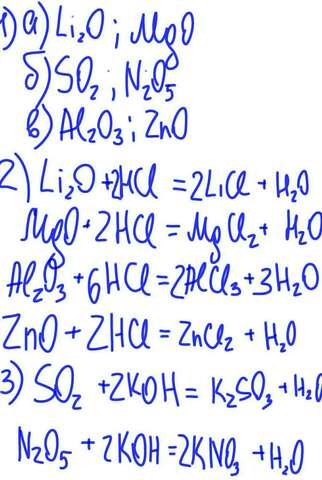 1) а) Li₂O; MgO
б) SO₂; N₂O₅
в) Al₂O₃; ZnO
2) Li₂O + 2HCl = 2LiCl + H₂O
MgO + 2HCl = MgCl₂ + H₂O
Al₂O₃ + 6HCl = 2AlCl₃ + 3H₂O
ZnO + 2HCl = ZnCl₂ + H₂O
3) SO₂ + 2KOH = K₂SO₃ + H₂O
N₂O₅ + 2KOH = 2KNO₃ + H₂O